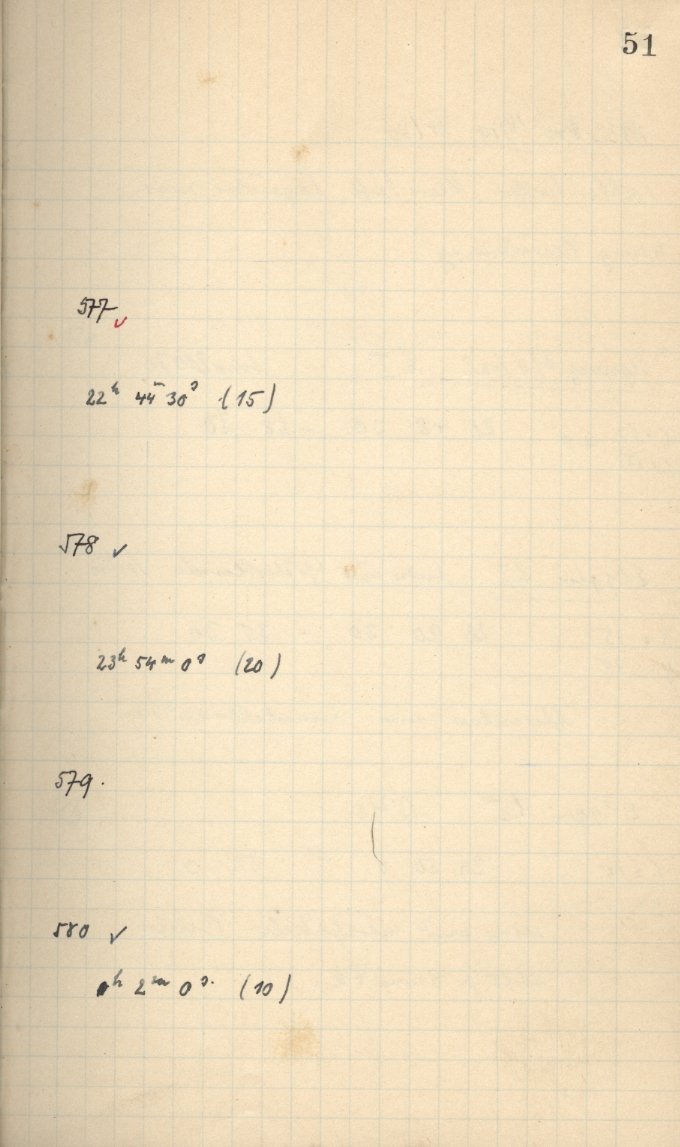 51
577 ✓
22h 44m 30s (15)
578 ✓
23h 54m 0s (20)
579.
580 ✓
0h 2m 0s. (10)